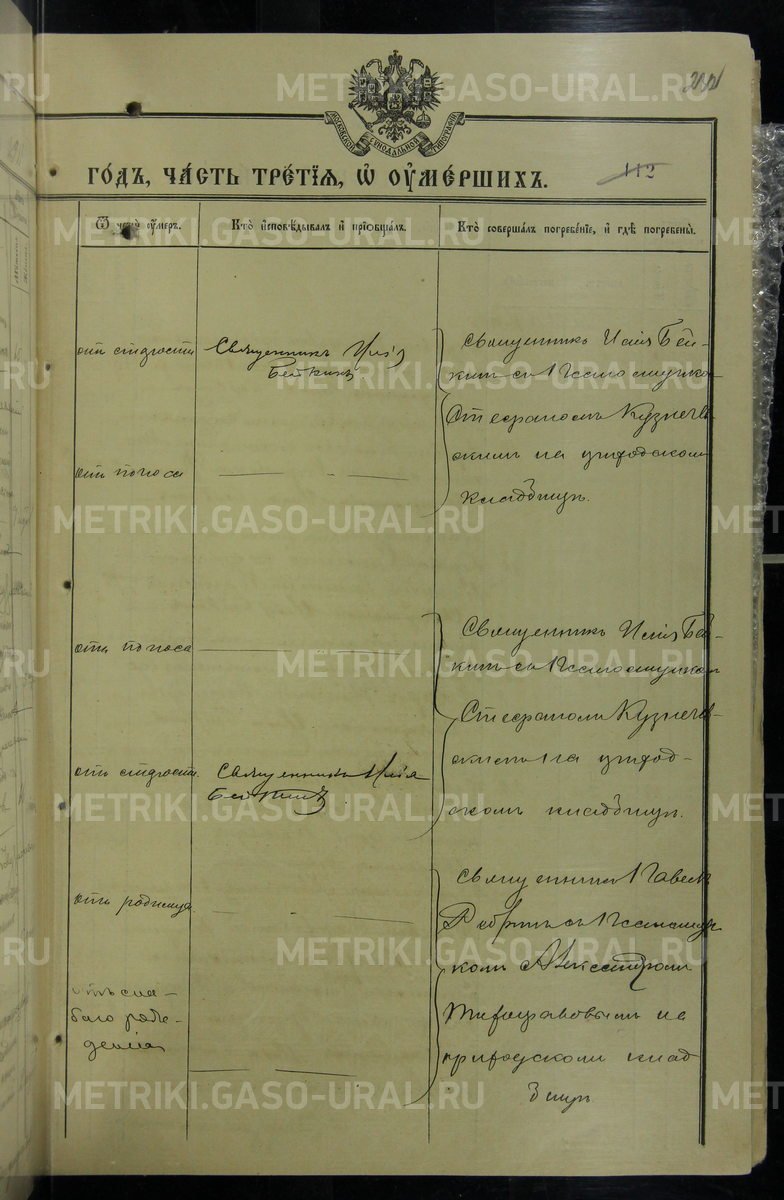 МОСКОВСКОЙ СѴНОДАЛЬНОЙ ТИПОГРАФІИ
ГОДЪ, ЧАСТЬ ТРЕТІЯ, Ѡ ОУМЕРШИХЪ.
112
Ѿ чегѡ оумеръ.
Кто исповѣдывалъ и прїобщалъ.
Кто совершалъ погребенїе, и гдѣ погребены.
отъ старости
Священникъ Илія
Бейкинъ
Священникъ Илія Бей-
кинъ съ Псаломщико
Стефаномъ Кузнечев-
скимъ на приходскомъ
кладбищѣ.
отъ поноса
отъ поноса
Священникъ Илія Бей-
кинъ съ Псаломщиком
Стефаномъ Кузнечев-
скимъ на приход-
скомъ кладбищѣ.
отъ старости
Священникъ Илія
Бейкинъ
отъ родимца
Священникъ Павелъ
съ Псаломщи-
комъ Александромъ
на
приходскомъ клад
бищѣ
отъ сла-
баго рож-
денія
METRIKI.GASO-URAL.RU